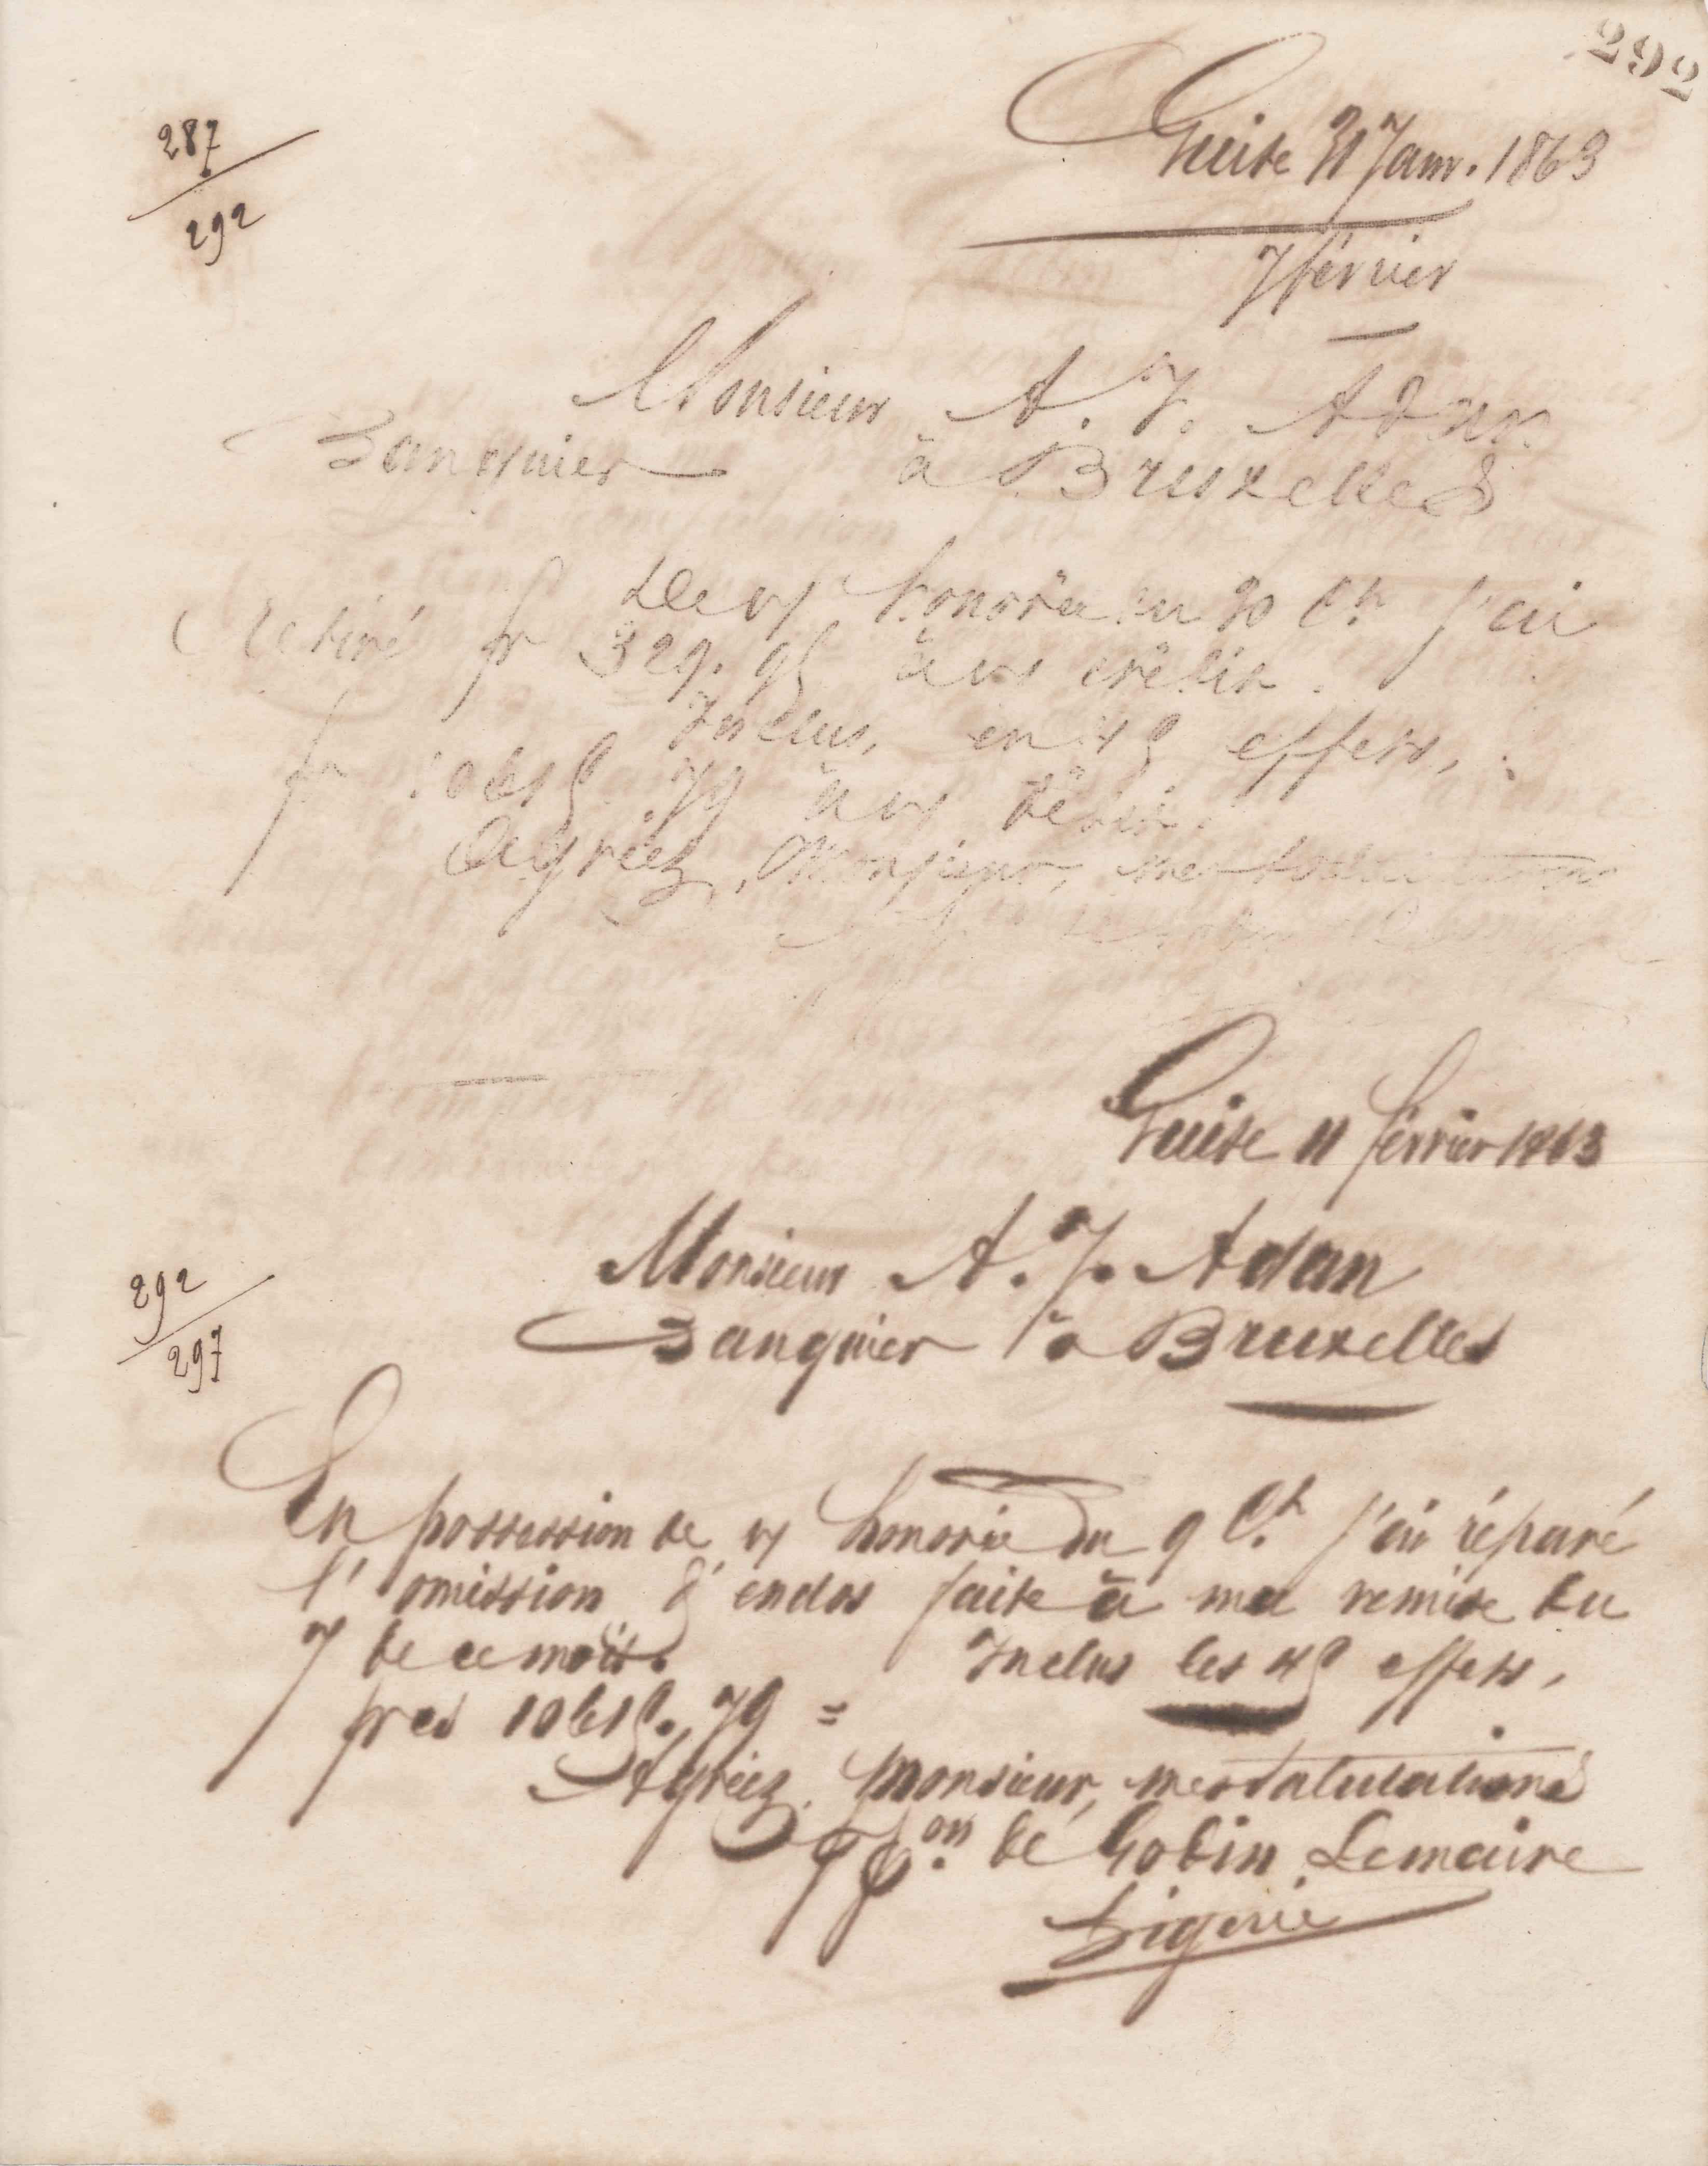 292
287
292
Guise 31 Janv. 1863
7 février
Monsieur A. J. Adan
Banquier à Bruxelles
De vs honorée du 30 Ct. j'ai
retiré fr 329.95 à vs crédit.
Inclus, en 45 effets,
fr 10615.79 à vs débit.
Agréez, Monsieur, mes salutations
Guise 11 février 1863
292
297
Monsieur A. J. Adan
Banquier à Bruxelles
En possession de vs honorée du 9 Ct. j'ai réparé
l'omission d'endos faite à ma remise du
7 de ce mois. Inclus les 45 effets,
fres 10615.79 =
Agréez, Monsieur, mes salutations
de Godin Lemaire